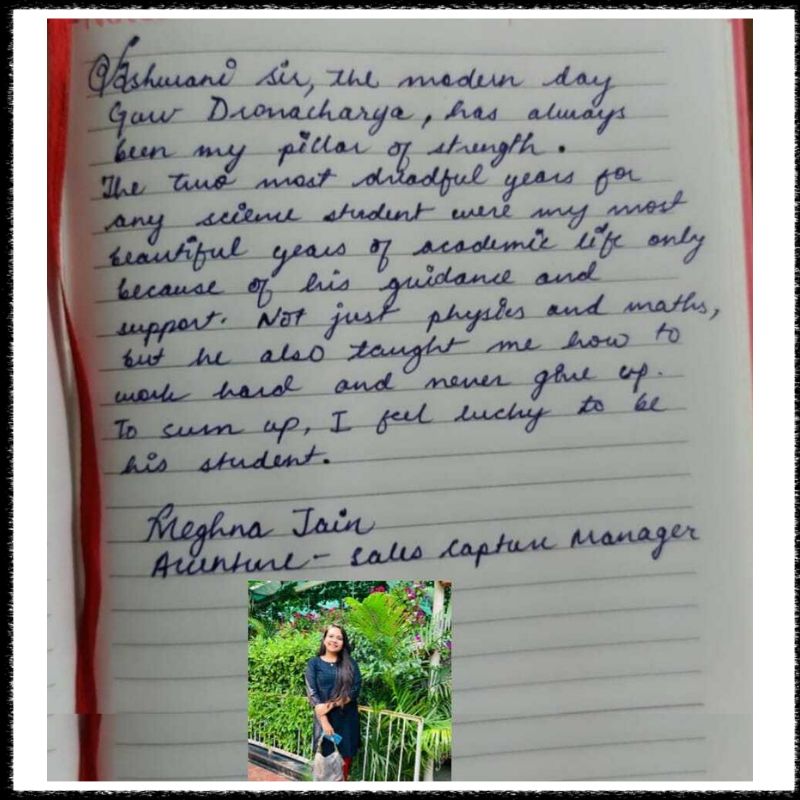 Vashwani sir, the modern day
Guru Dronacharya, has always
been my pillar of strength.
The two most dreadful years for
any science student were my most
beautiful years of academic life only
because of his guidance and
support. Not just physics and maths,
but he also taught me how to
work hard and never give up.
To sum up, I feel lucky to be
his student.
Meghna Jain
Accenture - Sales Capture Manager